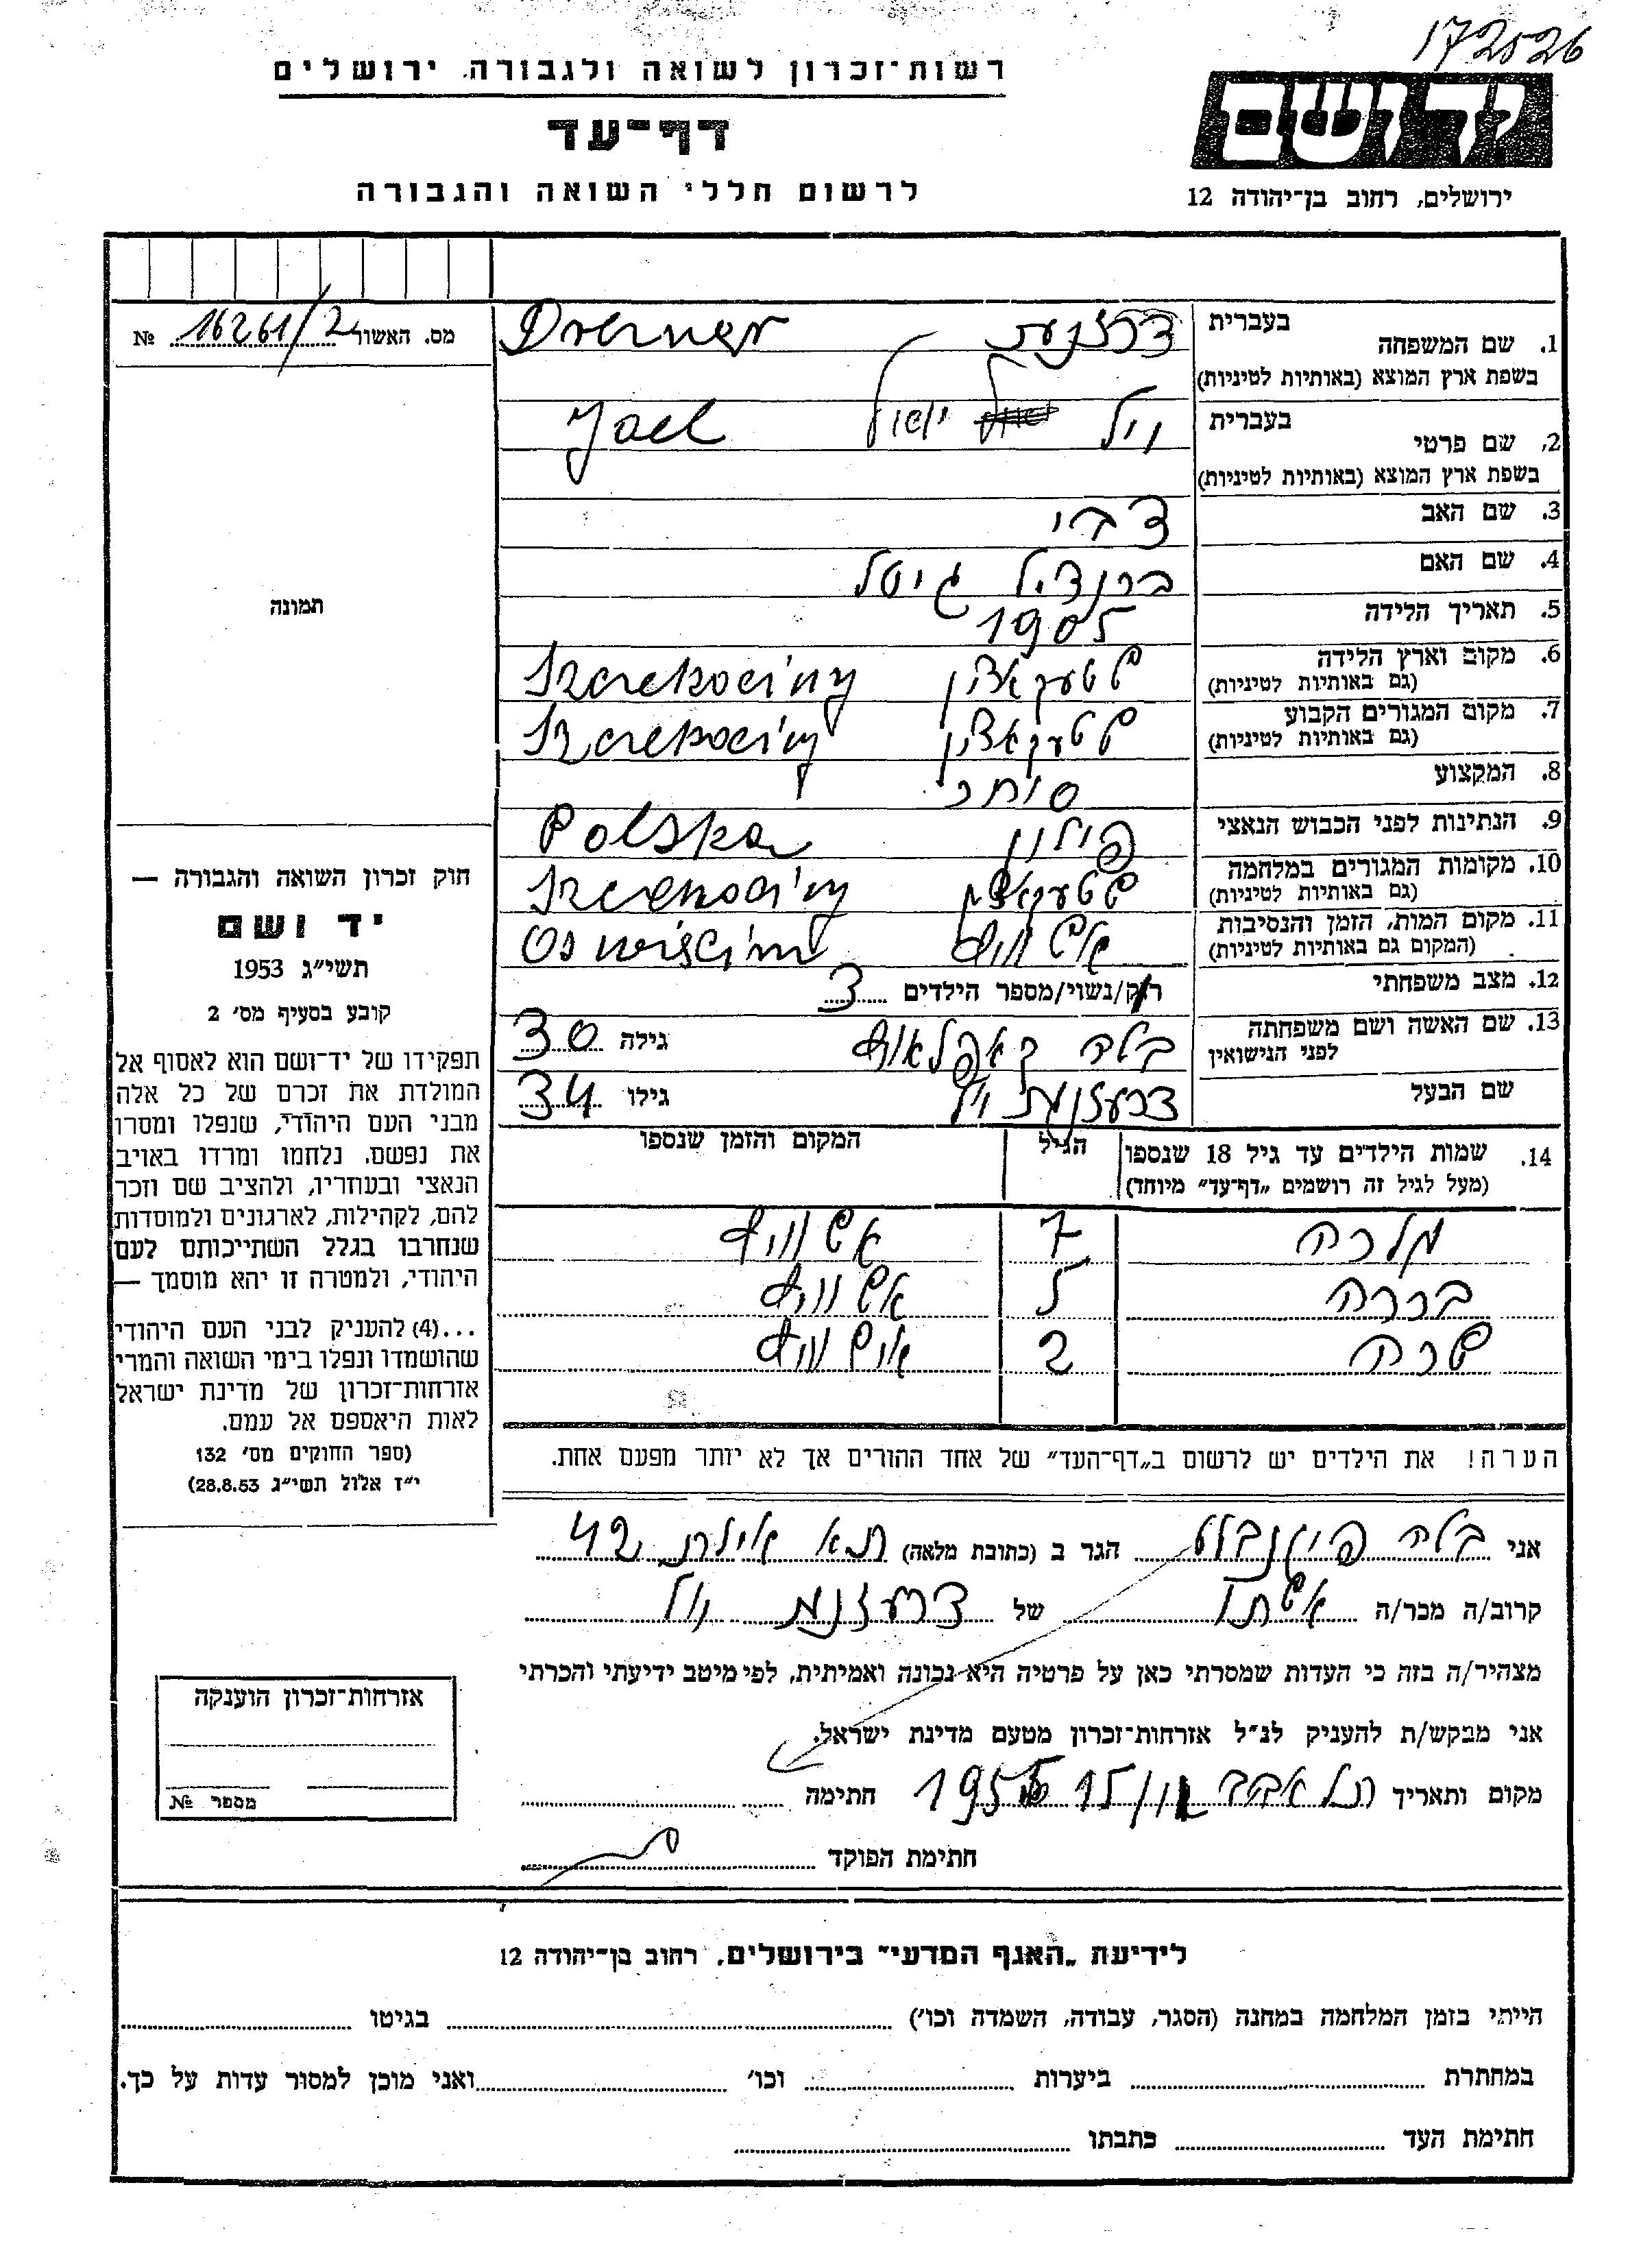 172526
רשות־זכרון לשואה ולגבורה, ירושלים
יד ושם
דף־עד
לרשום חללי השואה והגבורה
ירושלים, רחוב בן־יהודה 12
מס. האשור 16261/2 №
1. שם המשפחה בעברית
Drezner
בשפת ארץ המוצא (באותיות לטיניות)
2. שם פרטי בעברית
יואל Joel
בשפת ארץ המוצא (באותיות לטיניות)
3. שם האב צבי
4. שם האם ברנדיל גיטל
5. תאריך הלידה 1905
6. מקום וארץ הלידה Szczekociny
(גם באותיות לטיניות)
7. מקום המגורים הקבוע Szczekociny
(גם באותיות לטיניות)
8. המקצוע סוחר
9. הנתינות לפני הכבוש הנאצי פולין Polska
10. מקומות המגורים במלחמה Szczekociny
(גם באותיות לטיניות)
11. מקום המות, הזמן והנסיבות Oswięcim
(המקום גם באותיות לטיניות)
12. מצב משפחתי רוק/נשוי/מספר הילדים 3
13. שם האשה ושם משפחתה בלה גילה 30
לפני הנישואין
שם הבעל גילו 34
14. שמות הילדים עד גיל 18 שנספו הגיל המקום והזמן שנספו
(מעל לגיל זה רושמים „דף־עד” מיוחד)
מלכה 7 אשוויץ
ברכה 5 אשוויץ
שרה 2 אושוויץ
הערה! את הילדים יש לרשום ב„דף־העד” של אחד ההורים אך לא יותר מפעם אחת.
תמונה
חוק זכרון השואה והגבורה —
יד ושם
תשי״ג 1953
קובע בסעיף מס׳ 2
תפקידו של יד־ושם הוא לאסוף אל
המולדת את זכרם של כל אלה
מבני העם היהודי, שנפלו ומסרו
את נפשם, נלחמו ומרדו באויב
הנאצי ובעוזריו, ולהציב שם וזכר
להם, לקהילות, לארגונים ולמוסדות
שנחרבו בגלל השתייכותם לעם
היהודי, ולמטרה זו יהא מוסמך —
...(4) להעניק לבני העם היהודי
שהושמדו ונפלו בימי השואה והמרי
אזרחות־זכרון של מדינת ישראל
לאות היאספם אל עמם.
(ספר החוקים מס׳ 132
י״ז אלול תשי״ג 28.8.53)
אני בלה פיינבלט הגר ב (כתובת מלאה) ת״א אילת 42
קרוב/ה מכר/ה אשתו של
מצהיר/ה בזה כי העדות שמסרתי כאן על פרטיה היא נכונה ואמיתית, לפי מיטב ידיעתי והכרתי
אני מבקש/ת להעניק לנ״ל אזרחות־זכרון מטעם מדינת ישראל.
מקום ותאריך תל אביב חתימה
חתימת הפוקד
אזרחות־זכרון הוענקה
מספר №
לידיעת „האגף המדעי” בירושלים, רחוב בן־יהודה 12
הייתי בזמן המלחמה במחנה (הסגר, עבודה, השמדה וכו׳) בגיטו
במחתרת ביערות וכו׳ ואני מוכן למסור עדות על כך.
חתימת העד כתבתו